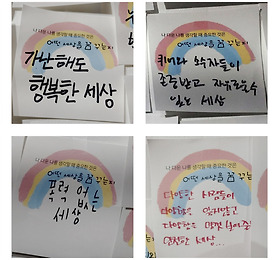 나 다운 나를 생각할 때 중요한 것은
어떤 세상을 꿈꾸는지
가난해도
행복한 세상
나 다운 나를 생각할 때 중요한 것은
어떤 세상을 꿈꾸는지
소수자들이
존중받고 자유로울수
있는 세상
나 다운 나를 생각할 때 중요한 것은
어떤 세상을 꿈꾸는지
폭력 없는
세상
나 다운 나를 생각할 때 중요한 것은
어떤 세상을 꿈꾸는지
다양한 사람들이
다양한
다양한
세상...